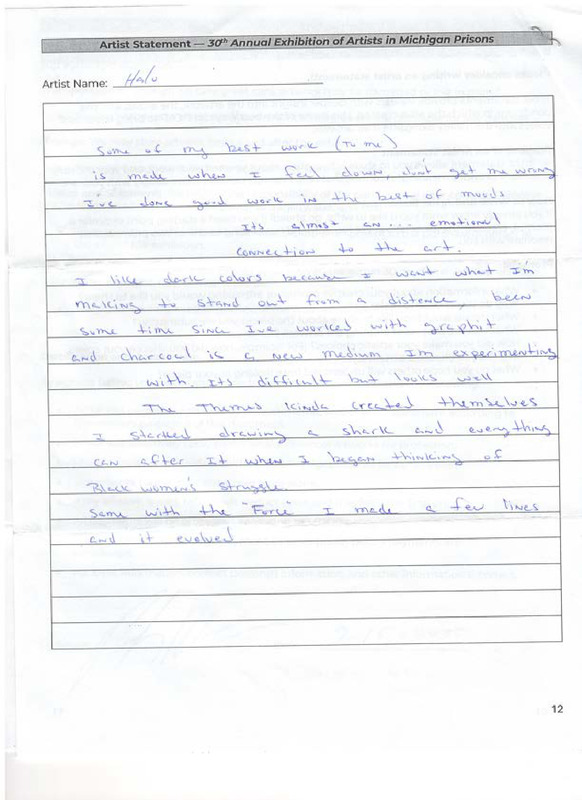 Artist Statement — 30th Annual Exhibition of Artists in Michigan Prisons
Artist Name: Halu
Some of my best work (to me)
is made when I feel down, don't get me wrong
I've done good work in the best of moods
Its almost an... emotional
connection to the art.
I like dark colors because I want what I'm
making to stand out from a distence, been
some time since I've worked with graphit
and charcoal is a new medium Im experimenting
with. Its difficult but looks well
The Themes kinda created themselves
I started drawing a shark and everything
can after it when I began thinking of
Black women's struggle.
Same with the "Force" I made a few lines
and it evolved
12